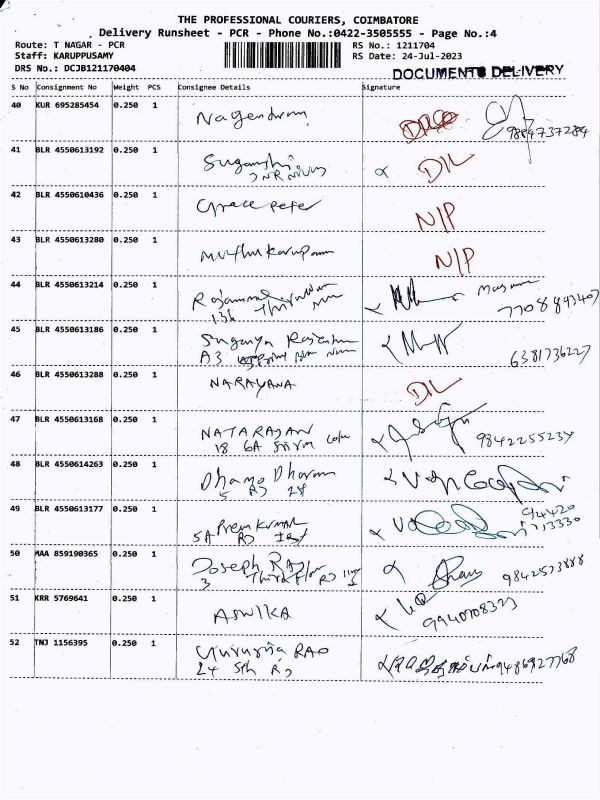 THE PROFESSIONAL COURIERS, COIMBATORE
Delivery Runsheet - PCR - Phone No.:0422-3505555 - Page No.:4
Route: T NAGAR - PCR RS No.: 1211704
Staff: KARUPPUSAMY RS Date: 24-Jul-2023
DRS No.: DCJB121170404 DOCUMENTS DELIVERY
S No Consignment No Weight PCS Consignee Details Signature
40 KUR 695285454 0.250 1 Nagendran
9884737284
41 BLR 4550613192 0.250 1 Suganthi D/L
42 BLR 4550610436 0.250 1 Grace peter N/P
43 BLR 4550613280 0.250 1 Muthukarupan N/P
44 BLR 4550613214 0.250 1 Rajammal
7708893407
45 BLR 4550613186 0.250 1 Suganya
A3
6381736227
46 BLR 4550613288 0.250 1 NARAYANA D/L
47 BLR 4550613168 0.250 1 NATARAJAN
18 6A 9842255234
48 BLR 4550614263 0.250 1 Dhamo Dharan
5 RJ 28
49 BLR 4550613177 0.250 1 Prem Kumar 94420
5A 13330
50 MAA 859190365 0.250 1 Joseph
3 Third floor 9842573888
51 KRR 5769641 0.250 1 ASWIKA 9940708323
52 TNJ 1156395 0.250 1 RAO 9486927768
24 5th